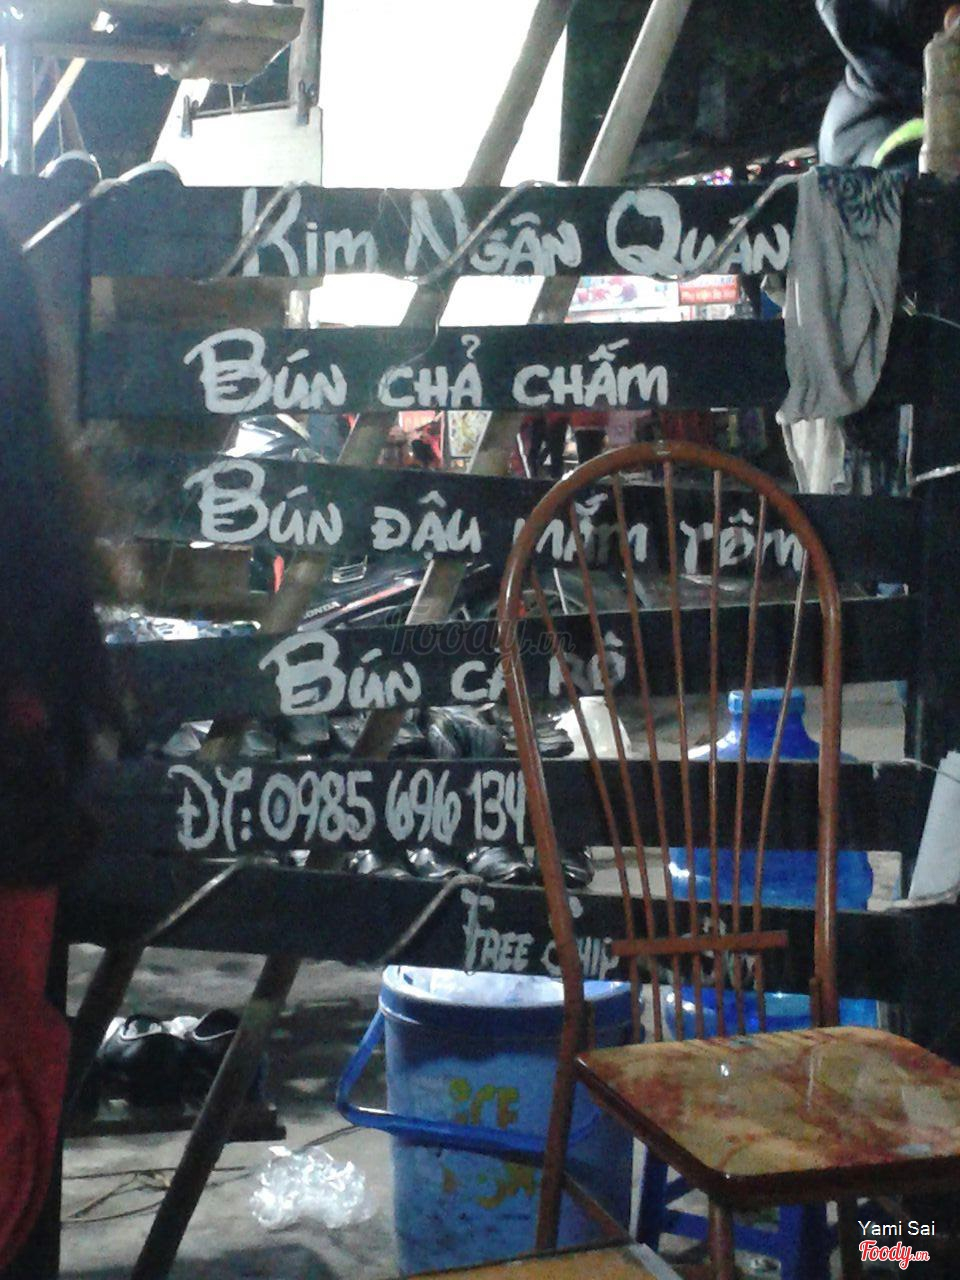 Kim Ngân Quán
Bún chả chấm
Bún đậu mắm tôm
HONDA
Foody.vn
Bún cá rô
ĐT: 0985 696 134
Free ship
Yami Sai
Foody.vn